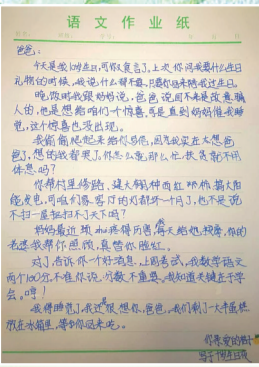 语文作业纸
爸爸：
今天是我10岁生日，可你又食言了，上次你问我要什么生日
礼物的时候，我说，什么都不要，只要你回来陪我过生日。
晚饭时我跟妈妈说，爸爸说回不来是故意骗
人的，他是想给咱们一个惊喜，可是直到妈妈催我睡
觉，这个惊喜也没出现。
我偷偷爬起来给你写信，因为我实在太想爸
爸了，想的我都哭了，你怎么那么忙，扶贫就不用
休息吗？
你帮村里修路，建大棚种西红柿，搞太阳
能发电，可咱们家客厅的灯都坏一个月了，也不是说
不扫一屋
妈妈最近
老婆我帮你照顾，真替你脸红。
对了，告诉你一个好消息，上周考试，我数学语文
两个100分，不准你说，分数不重要，我知道关键在于学
会。哼！
我得睡觉了，我还很想你，爸爸，我们剩了大半蛋糕
放在冰箱里，等你回来吃。
你亲爱的
写于10岁生日夜